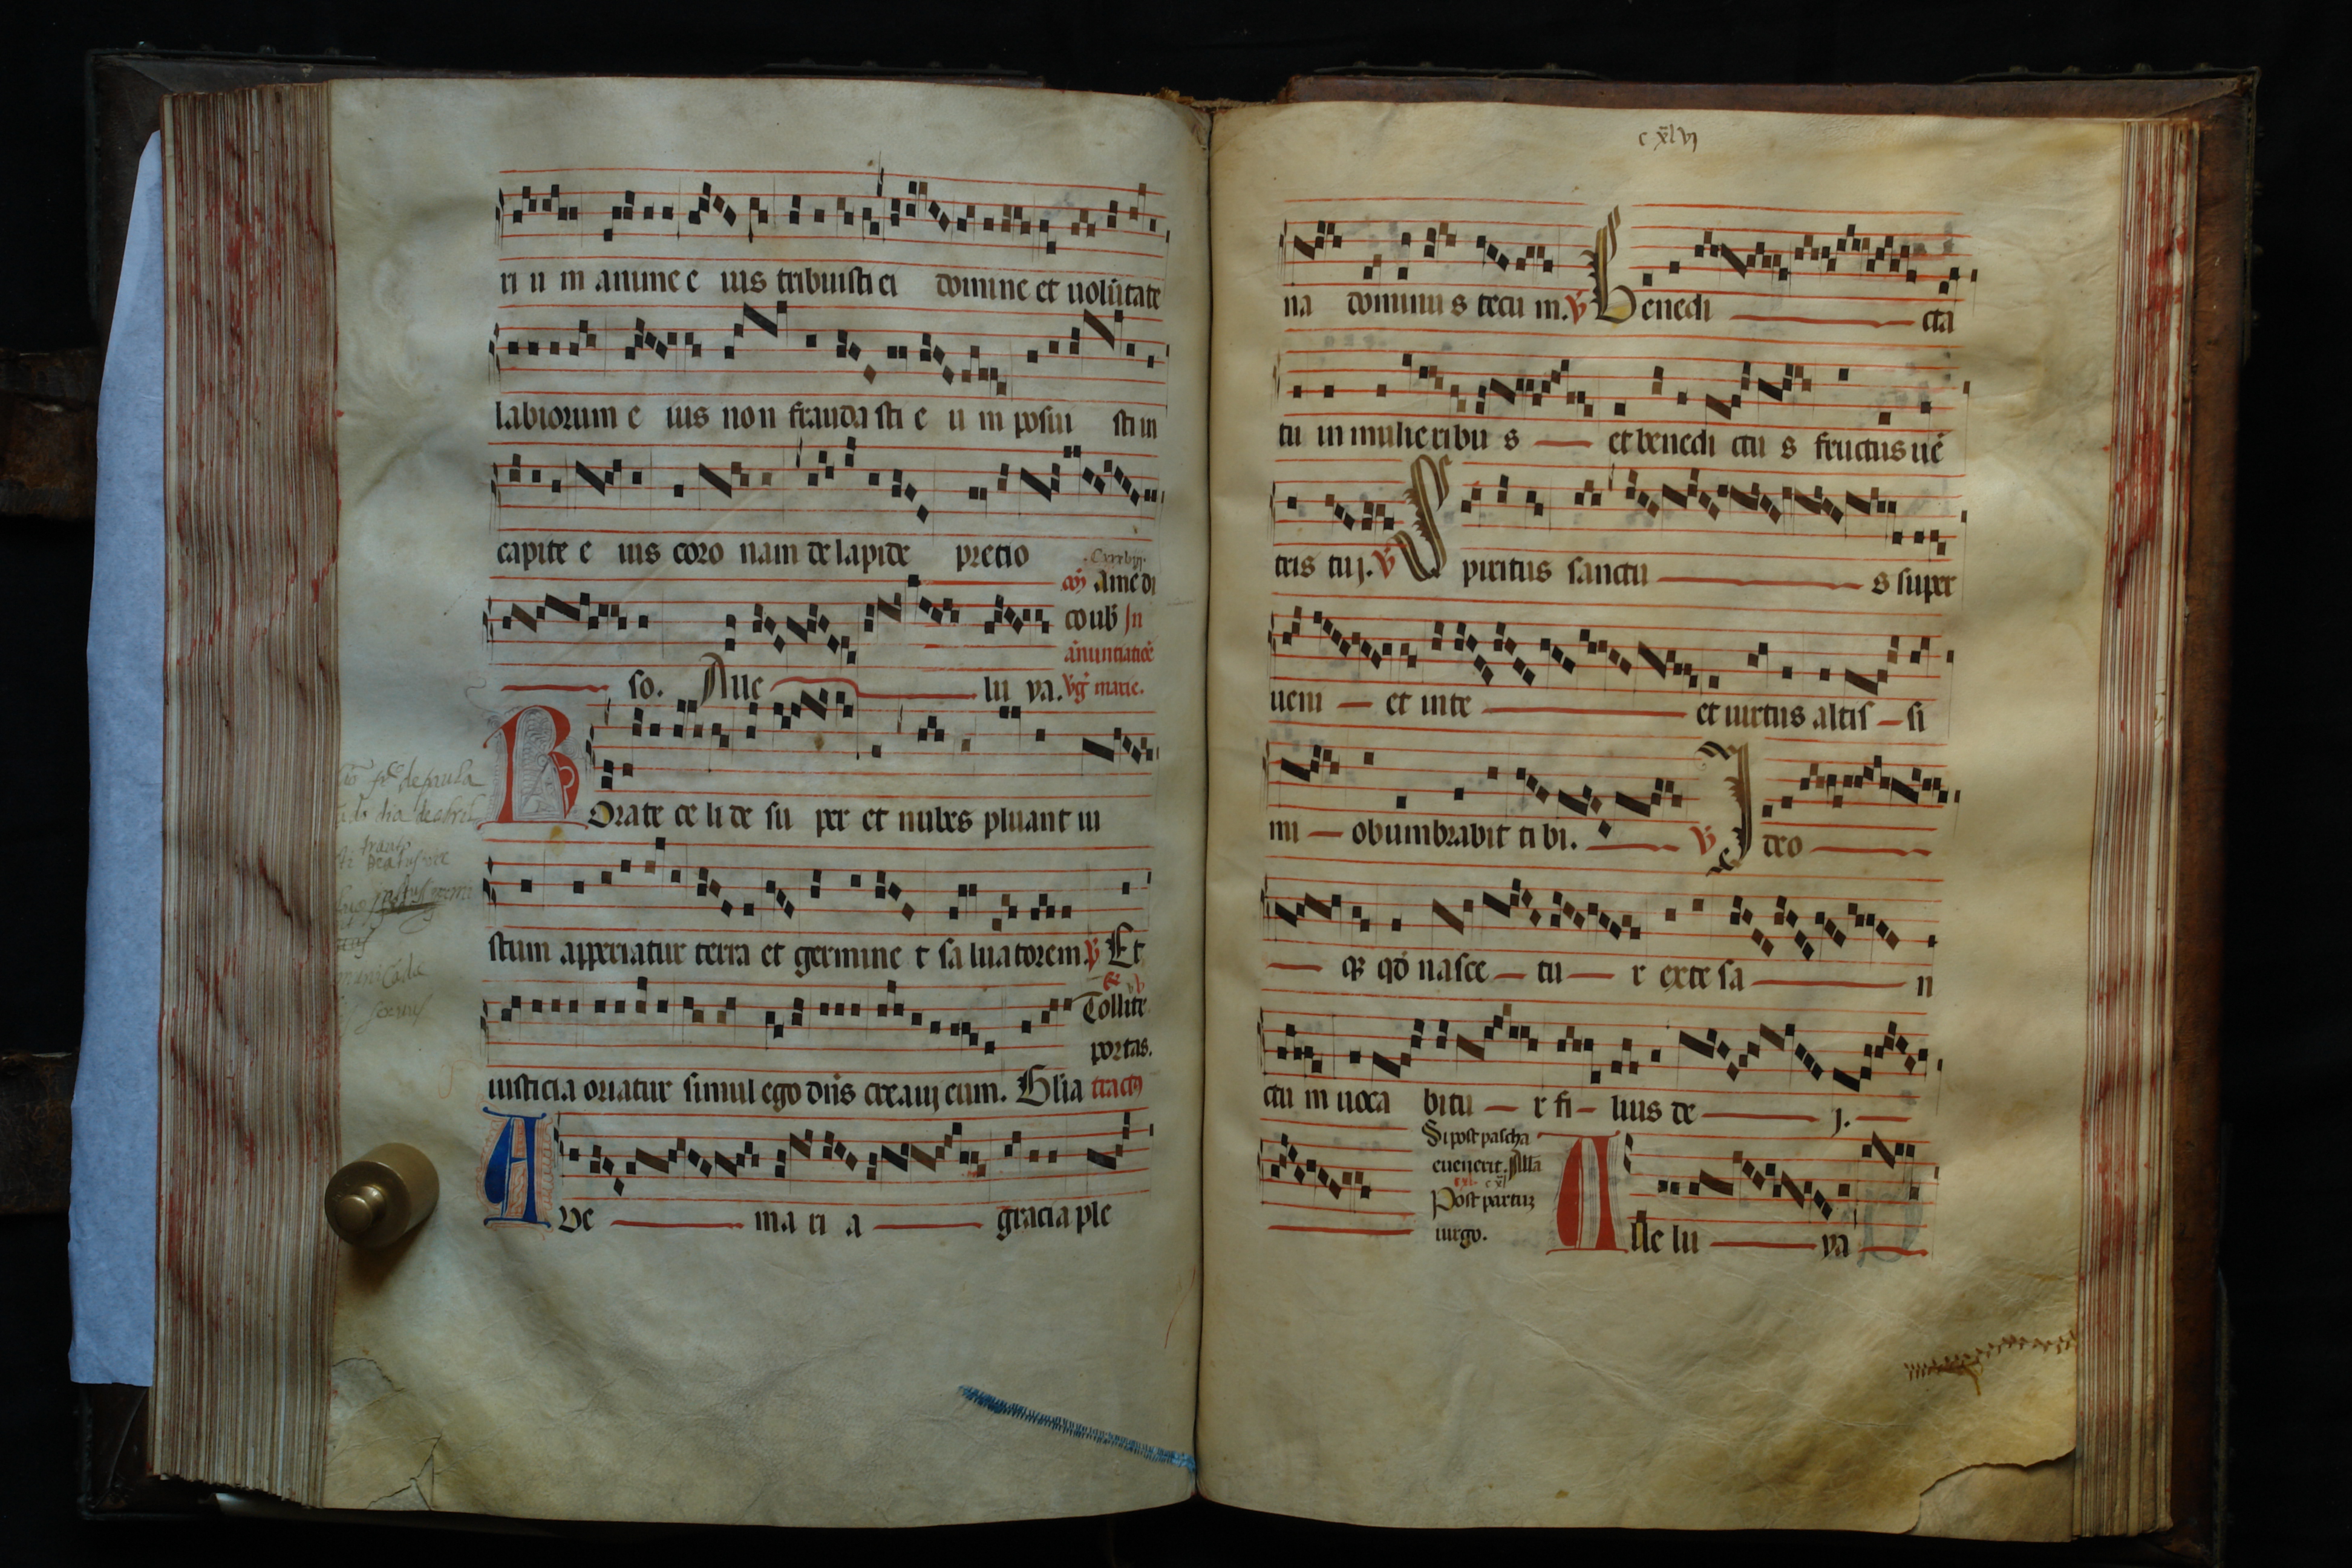 ri u m anime e ius tribuisti ei domine et uolūtate
labiorum e ius non frauda sti e u m posui sti in
capite e ius coro nam de lapide precio
so. Alle lu ya.
cō amē di
co uob In
ānuntiatiōe
Vgis marie.
Rorate ce li de su per et nubes pluant iu
stum apperiatur terra et germine t sa luatorem. v Et
iusticia oriatur simul ego dn̄s creauj eum. Glia
Tollite
portas.
tractus
Aue ma ri a gracia ple
c xl vj
na dominu s tecu m. v Benedi cta
tu in mulieribu s et benedi ctu s fructus uē
tris tuj. v Spiritus sanctu s super
ueni et in te et uirtus altis si
mi obumbrabit ti bi. v Ideo
qz qd̄ nasce tu r ex te sa n
ctu m uoca bitu r fi lius de j.
Si post pascha
euenerit. Alla
cxl
Post partuz
uirgo.
Alle lu ya